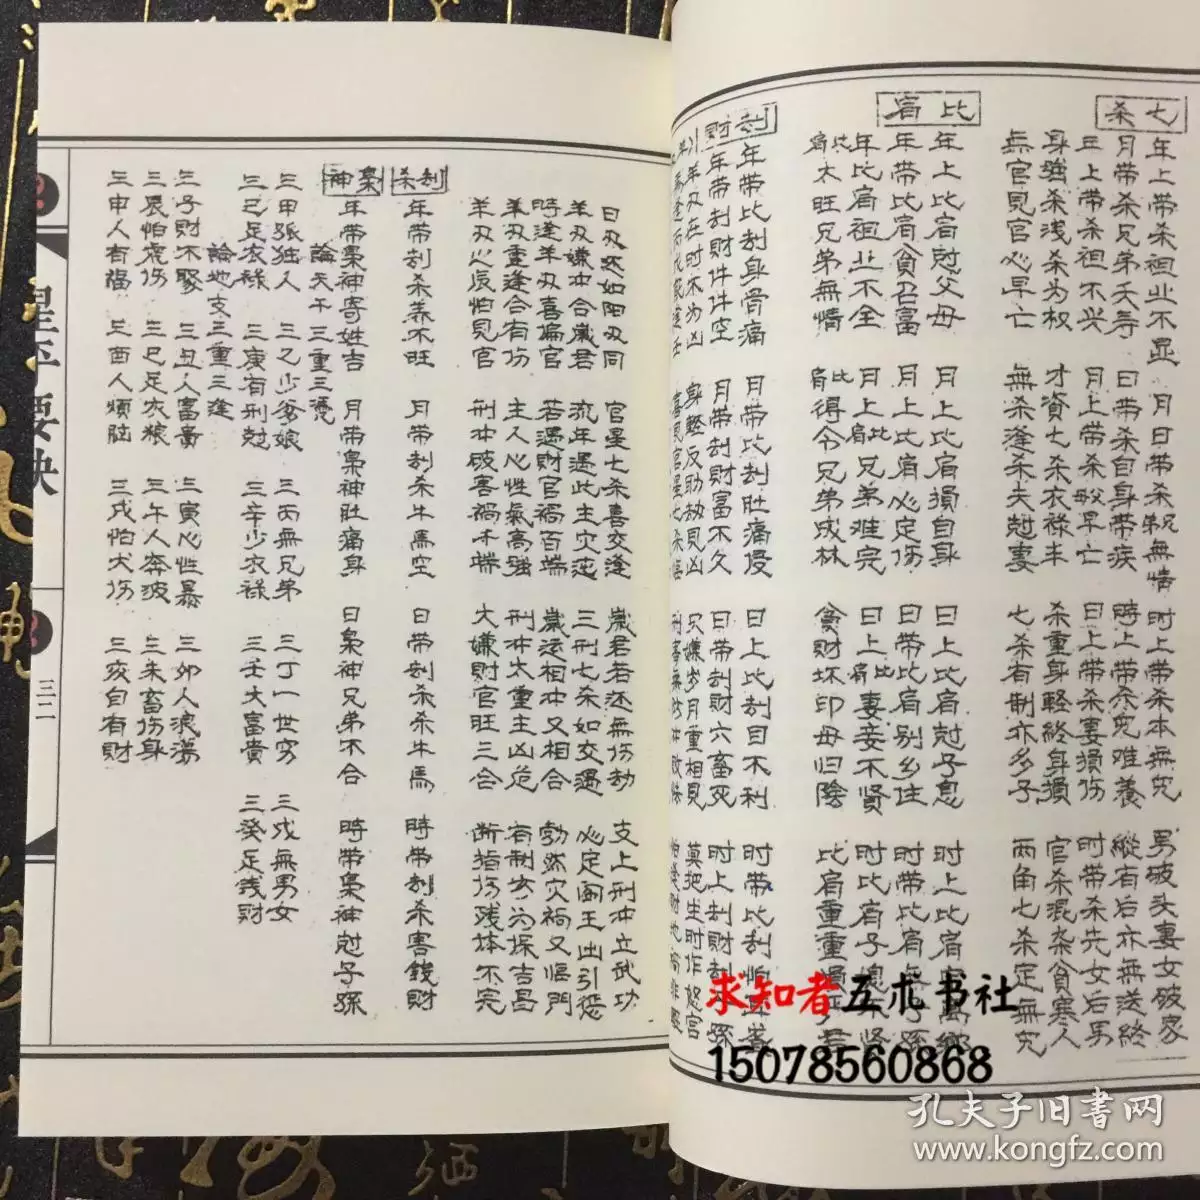 七杀
年上带杀祖业不显 月日带杀親無情 时上带杀本無児 男破头妻女破家
月带杀兄弟夭寿 日带杀自身带疾 時上带杀児难養 縱有后亦無送終
年上带杀祖不兴 月上带杀父早亡 日上带杀妻損伤 时带杀先女后男
身強杀浅杀为权 才資七杀衣禄丰 杀重身軽終身損 官杀混杂貧寒人
無官見官必早亡 無杀逢杀夫尅妻 七杀有制亦多子 両角七杀定無児
比肩
年上比肩尅父母 月上比肩損自身 日上比肩尅子息
年带比肩貪召富 月上比肩必定伤 日带比肩别乡住
年比肩祖业不全 月上比肩兄弟难完 日上比肩妻妾不贤
比肩太旺兄弟無情 比肩得令兄弟成林 貪財坏印母归陰
刦財
年带比刦身骨痛 月带比刦肚痛侵 日上比刦目不利
年带刦財件件空 月带刦財富不久 日带刦財六畜死
日刃必如阳刃同 官星七杀喜交逢 歳君若还無伤劫 支上刑冲立武功
羊刃嫌冲合歳君 流年遇此主灾迍 三刑七杀如交遇 必定阎王出引惩
時逢羊刃喜偏官 若遇財官禍百端 歳运相冲又相合 勃然灾禍又临门
羊刃重逢合有伤 主人心性氣高強 刑冲太重主凶危 有制方为保吉昌
羊刃火辰怕見官 刑冲破害禍千端 大嫌財官旺三合 断指伤残体不完
刦杀
年带刦杀养不旺 月带刦杀牛馬空 日带刦杀杀牛馬 時带刦杀害錢財
梟神
年带梟神寄姓吉 月带梟神肚痛身 日梟神兄弟不合 時带梟神尅子孫
論天干三重三憑
三甲孤独人 三乙少爹娘 三丙無兄弟 三丁一世穷 三戊無男女
三己足衣禄 三庚有刑尅 三辛少衣禄 三壬大富貴 三癸足錢財
論地支三重三逢
三子財不聚 三丑人富貴 三寅心性暴 三卯人浪蕩
三辰怕虎伤 三巳足衣粮 三午人奔波 三未畜伤身
三申人有福 三酉人煩脑 三戌怕犬伤 三亥自有財
星平要诀
三二
求知者五术书社
15078560868
孔夫子旧书网
www.kongfz.com